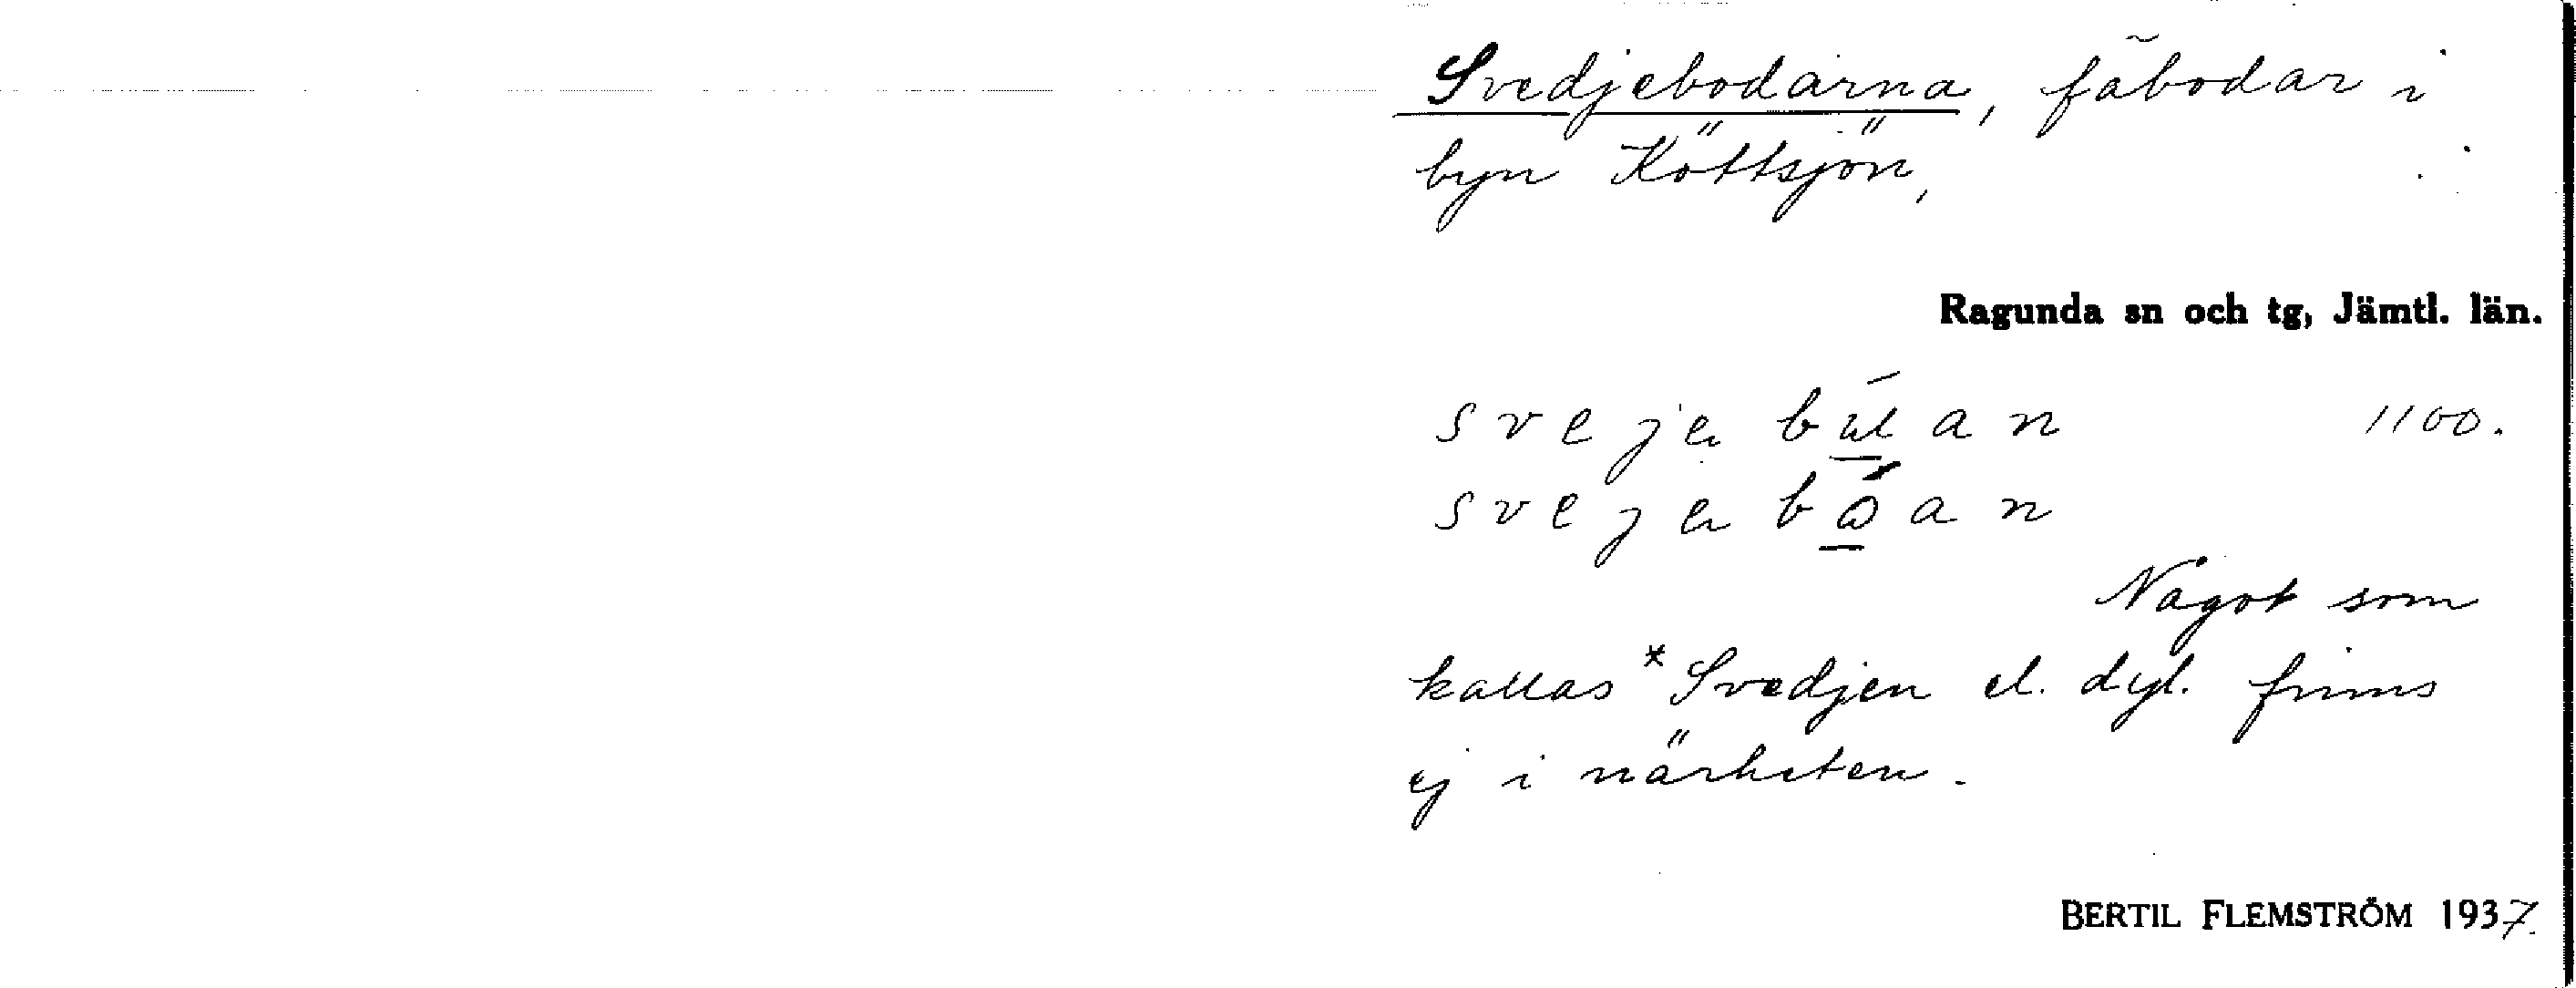 Svedjebodarna, fäbodar i
byn Köttsjön,
Ragunda sn och tg, Jämtl. län.
1100.
Något som
kallas *Svedjen el. dyl. finns
ej i närheten.
BERTIL FLEMSTRÖM 1937.